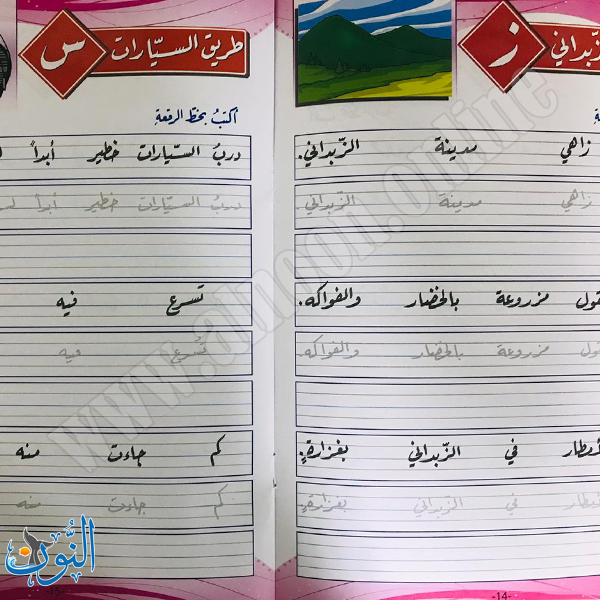 ز
زاهي مدينة الزّبداني.
زاهي مدينة الزّبداني.
مزروعة بالخضار والفواكه.
مزروعة بالخضار والفواكه.
في الزّبداني بغزارةٍ.
في الزّبداني بغزارةٍ.
-14-
طريق السيّارات
س
أكتبُ بخطّ الرقعةِ
دربُ السيّارات خطير أبداً
دربُ السيّارات خطير أبداً
تسرع فيه
تسرع فيه
كم جاءت منه
كم جاءت منه
النُّون
www.alnoon.online